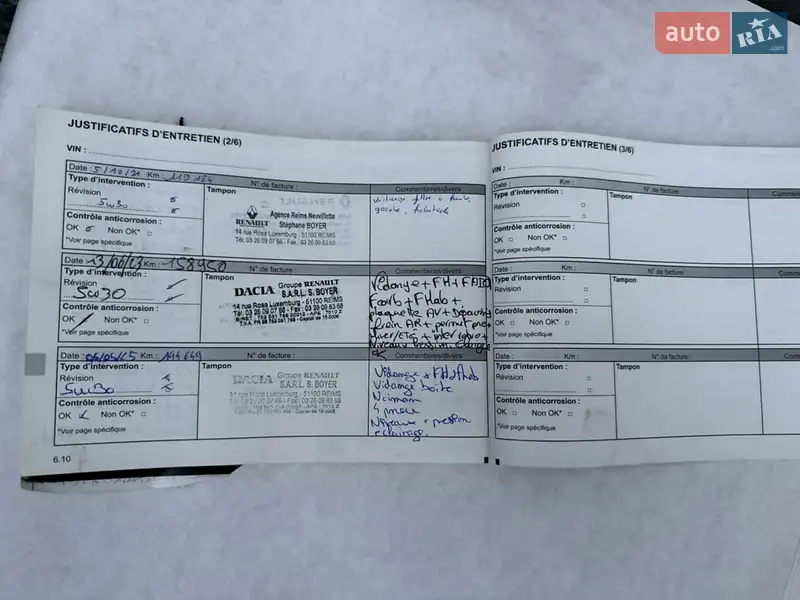 auto RIA.com
JUSTIFICATIFS D'ENTRETIEN (2/6)
VIN :
Date : 5/10/21 Km : 119 184
N° de facture :
Commentaires/divers
Type d'intervention :
Tampon
Révision
5w30
Contrôle anticorrosion :
OK Non OK*
*Voir page spécifique
RENAULT
Agence Reims Neuvillette
Stéphane BOYER
14 rue Rosa Luxemburg - 51100 REIMS
Tél. 03 26 09 07 66 - Fax : 03 26 09 83 68
Vidange filtre à huile,
Date : 13/06/23 Km : 158450
N° de facture :
Commentaires/divers
Type d'intervention :
Tampon
Révision
5w30
Contrôle anticorrosion :
OK Non OK*
*Voir page spécifique
DACIA Groupe RENAULT
S.A.R.L. S. BOYER
14 rue Rosa Luxemburg - 51100 REIMS
Tél. 03 26 09 07 66 - Fax : 03 26 09 83 68
Vidange + FH +
Fcarb + FHab +
plaquette AV +
frein AR + permut pneu
Niveaux
ok
Date : 06/04/25 Km :
N° de facture :
Commentaires/divers
Type d'intervention :
Tampon
Révision
5w30
Contrôle anticorrosion :
OK Non OK*
*Voir page spécifique
DACIA Groupe RENAULT
S.A.R.L. S. BOYER
14 rue Rosa Luxemburg - 51100 REIMS
Tél. 03 26 09 07 66 - Fax : 03 26 09 83 68
Vidange + FH
Vidange boite
4 pneu
Niveaux + pression
eclairage.
6.10
JUSTIFICATIFS D'ENTRETIEN (3/6)
VIN :
Date : Km :
N° de facture
Type d'intervention :
Tampon
Révision
Contrôle anticorrosion :
OK Non OK*
*Voir page spécifique
Date : Km :
N° de facture :
Type d'intervention :
Tampon
Révision
Contrôle anticorrosion :
OK Non OK*
*Voir page spécifique
Date : Km :
N° de facture :
Type d'intervention :
Tampon
Révision
Contrôle anticorrosion :
OK Non OK*
*Voir page spécifique